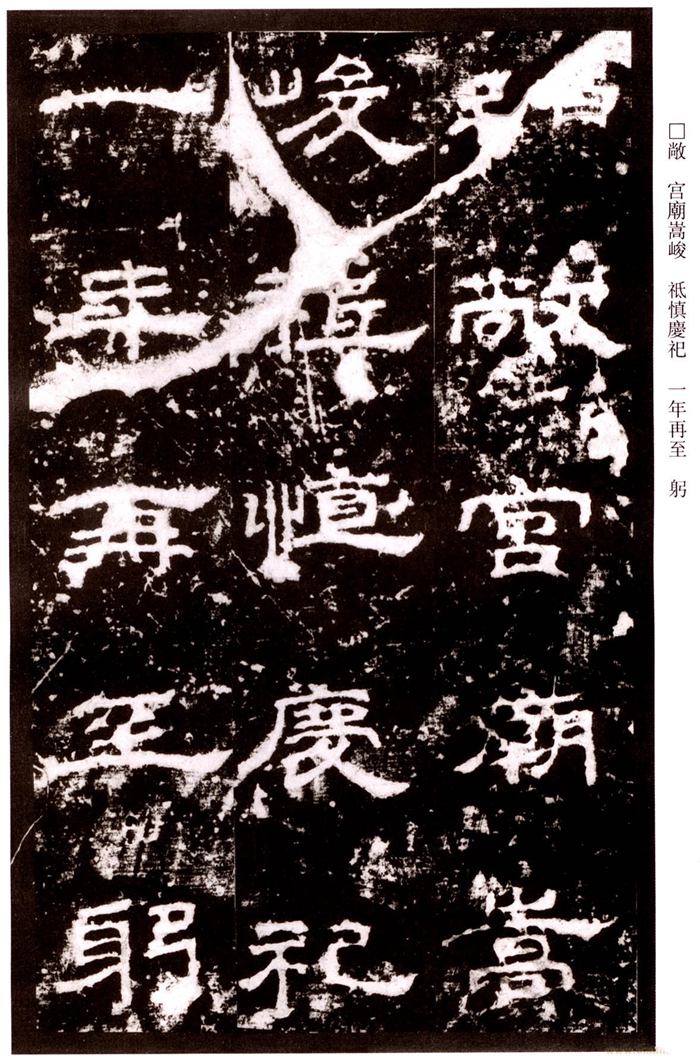 □敞　宫廟嵩峻　祗慎慶祀　一年再至　躬
敞宫廟嵩
峻祗慎慶祀
一年再至躬